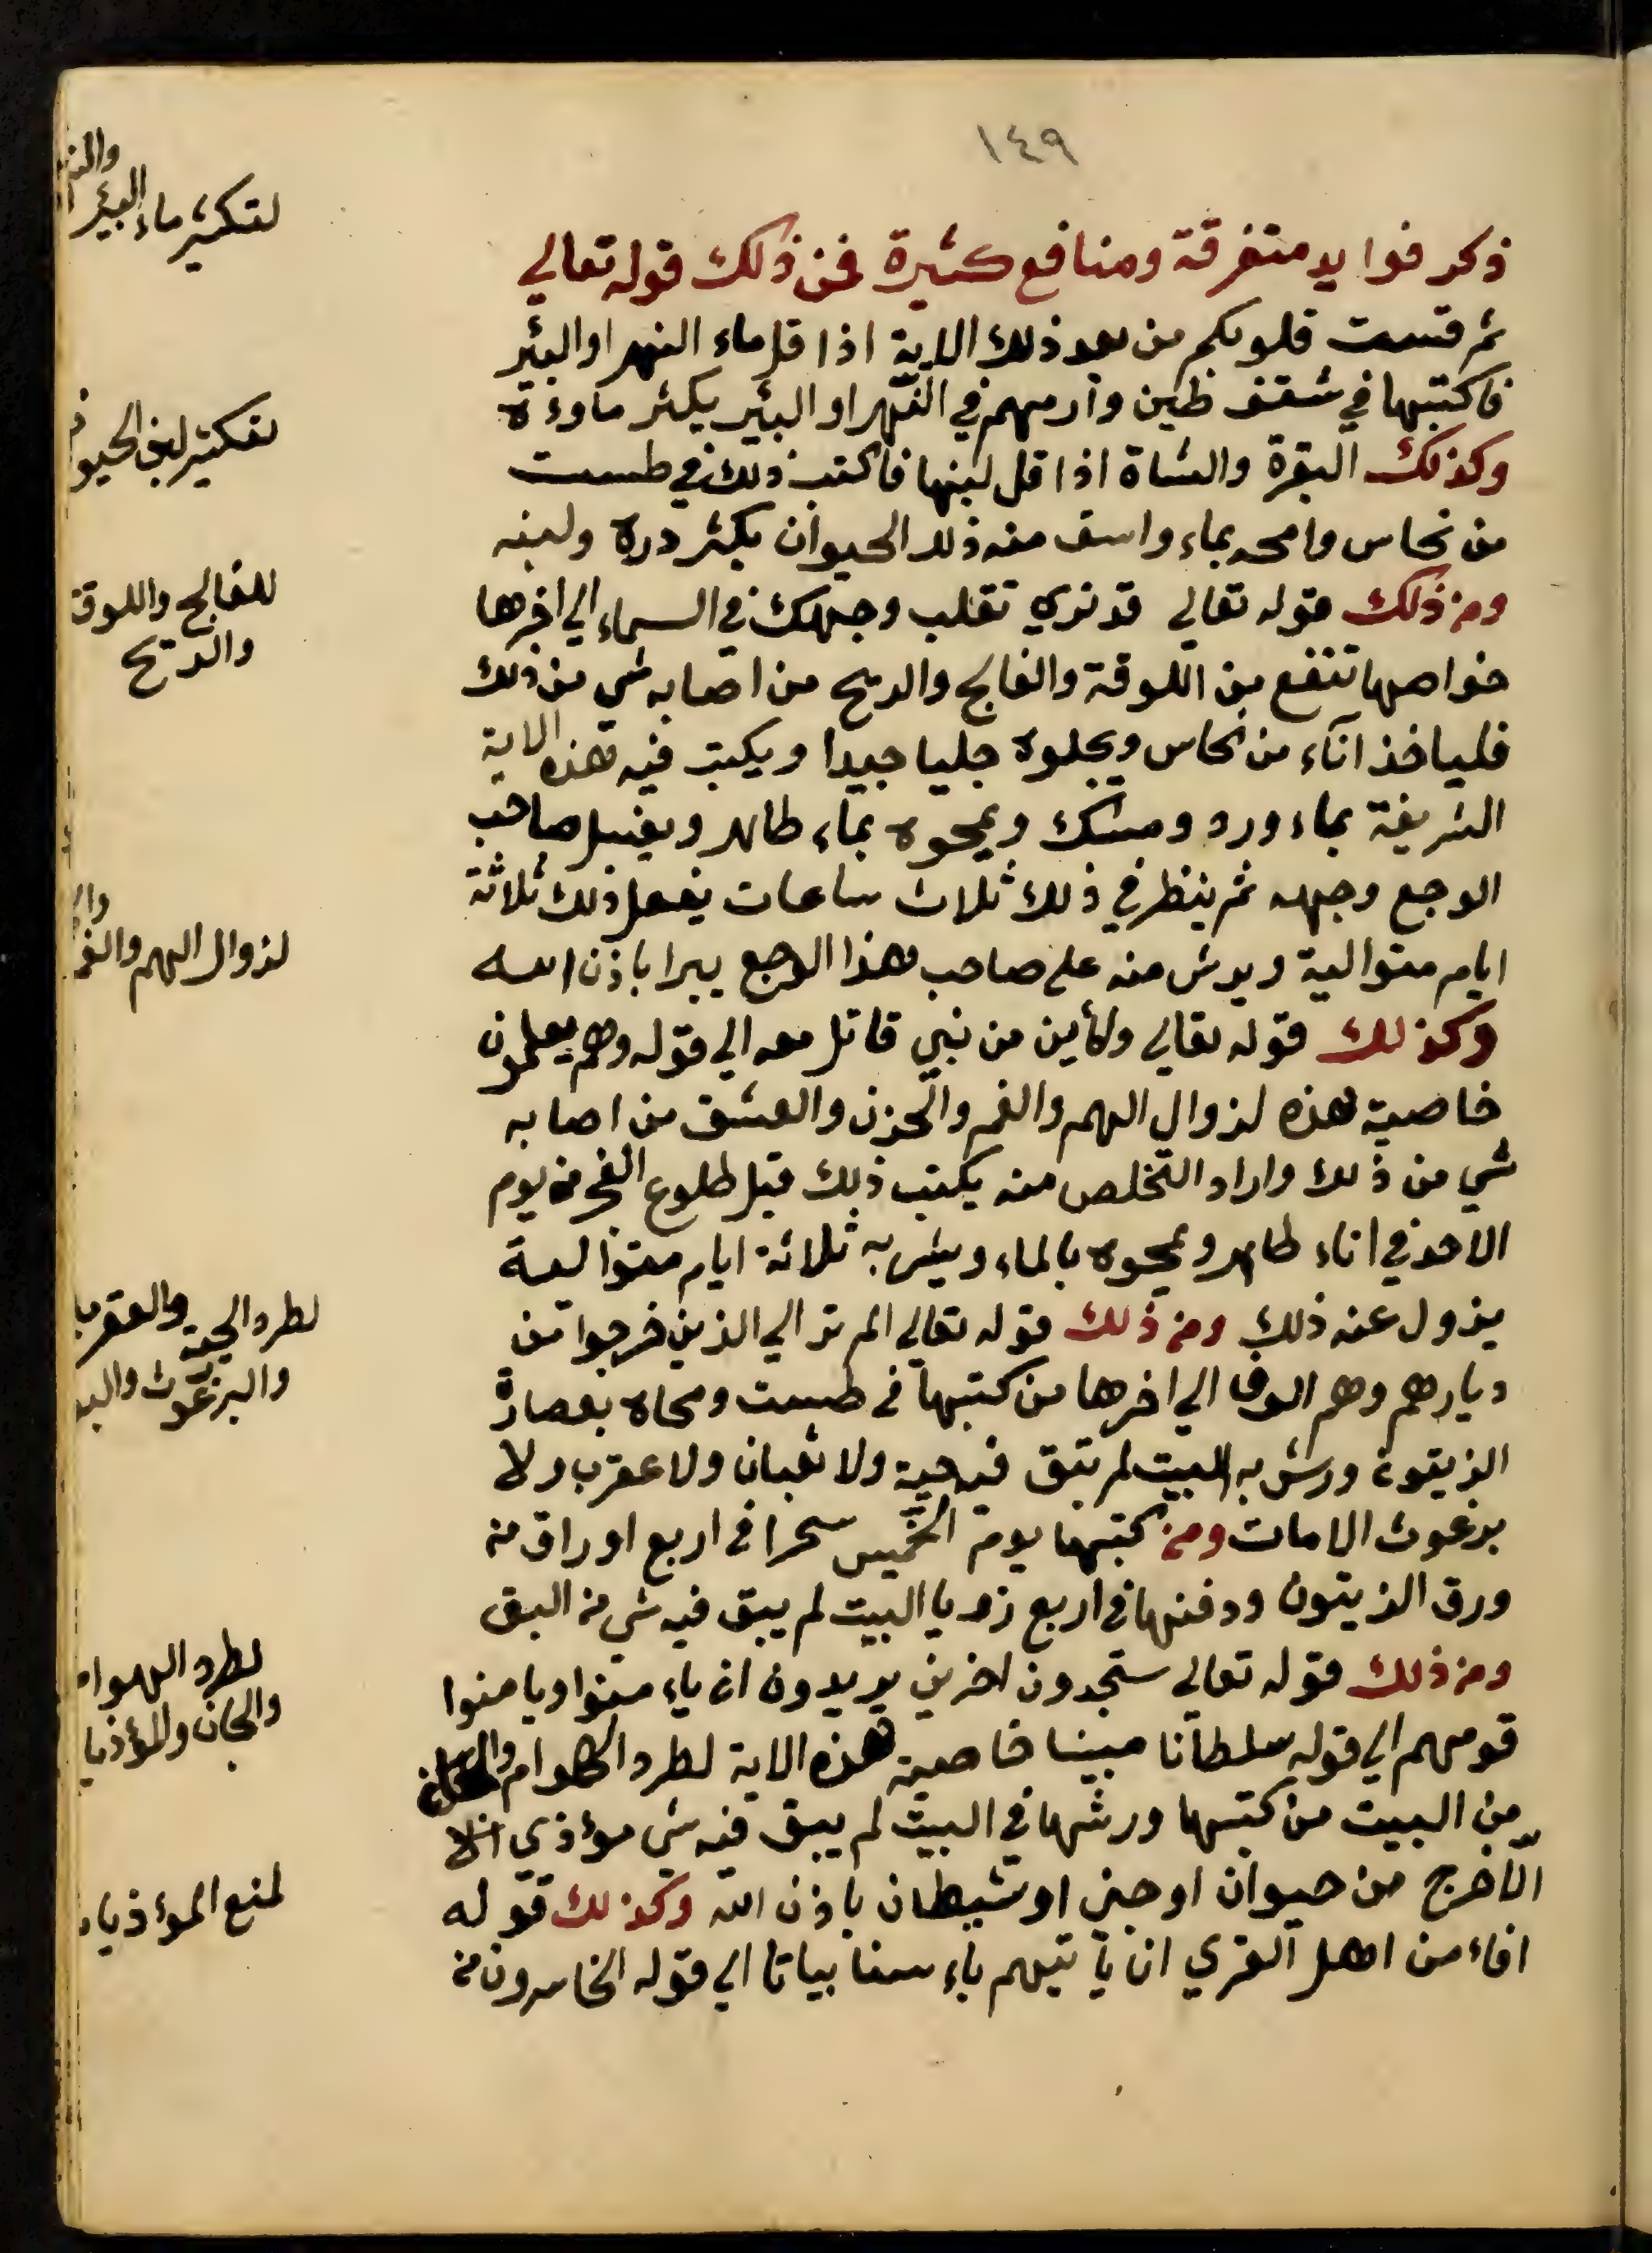 ١٤٩
ذكر فوايد متفرقة ومنافع كثيرة فمن ذلك قوله تعالي
ثم قست قلوبكم من بعد ذلك الاية اذا قل ماء النهر او البئر
فاكتبها في شقف طين وارمهم في النهر او البئير يكثر ماوءه
وكذلك البقرة والشاة اذا قل لبنها فاكتب ذلك في طست
من نحاس وامحه بماء واسق منه ذلك الحيوان يكثر دره ولبنه
ومن ذلك قوله تعالي قد نري تقلب وجهك في السماء الي اخرها
خواصها تنفع من اللوقة والفالج والريح من اصابه شي من ذلك
فلياخذ اناء من نحاس ويجلوه جليا جيدا ويكتب فيه هذه الاية
الشريفة بماء ورد ومسك ويمحوه بماء طاهر ويغسل صاحب
الوجع وجهه ثم ينظر في ذلك ثلاث ساعات يفعل ذلك ثلاثة
ايام متوالية ويرش منه علي صاحب هذا الوجع يبرا باذن الله
وكذلك قوله تعالي وكأين من نبي قاتل معه الي قوله وهم يعلمون
خاصية هذه لزوال الهم والغم والحزن والعشق من اصابه
شي من ذلك واراد التخلص منه يكتب ذلك قبل طلوع الفجر من يوم
الاحد في اناء طاهر ويمحوه بالماء ويشربه ثلاثة ايام متوالية
يزول عنه ذلك ومن ذلك قوله تعالي الم تر الي الذين خرجوا من
ديارهم وهم الوف الي اخرها من كتبها في طست ومحاه بعصارة
الزيتون ورش به البيت لم تبق فيه حية ولا ثعبان ولا عقرب ولا
برغوث الا مات ومن كتبها يوم الخميس سحرا في اربع اوراق من
ورق الزيتون ودفنها في اربع زوايا البيت لم يبق فيه شي من البق
ومن ذلك قوله تعالي ستجدون اخرين يريدون ان ياءمنوا ويامنوا
قومهم الي قوله سلطانا مبينا خاصية هذه الاية لطرد الهوام
من البيت من كتبها ورشها في البيت لم يبق فيه شي مؤذي
الا خرج من حيوان او جني او شيطان باذن الله وكذلك قوله
افاءمن اهل القري ان ياتيهم باءسنا بياتا الي قوله الخاسرون من
لتكثير ماء البئر
لتكثير لبن
للفالج واللوقة
والريح
لزوال الهم
لطرد الحية والعقرب
والبرغوث
لطرد الهوام
والجان
لمنع